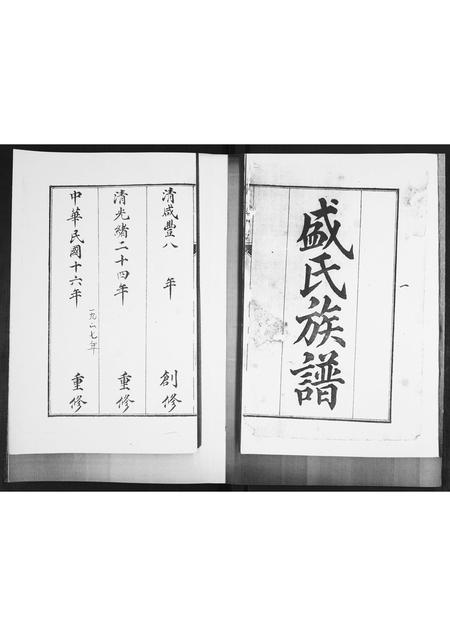 盛氏族譜
一
清咸豐八年 創修
清光緒二十四年 重修
中華民國十六年 重修
一九二七年